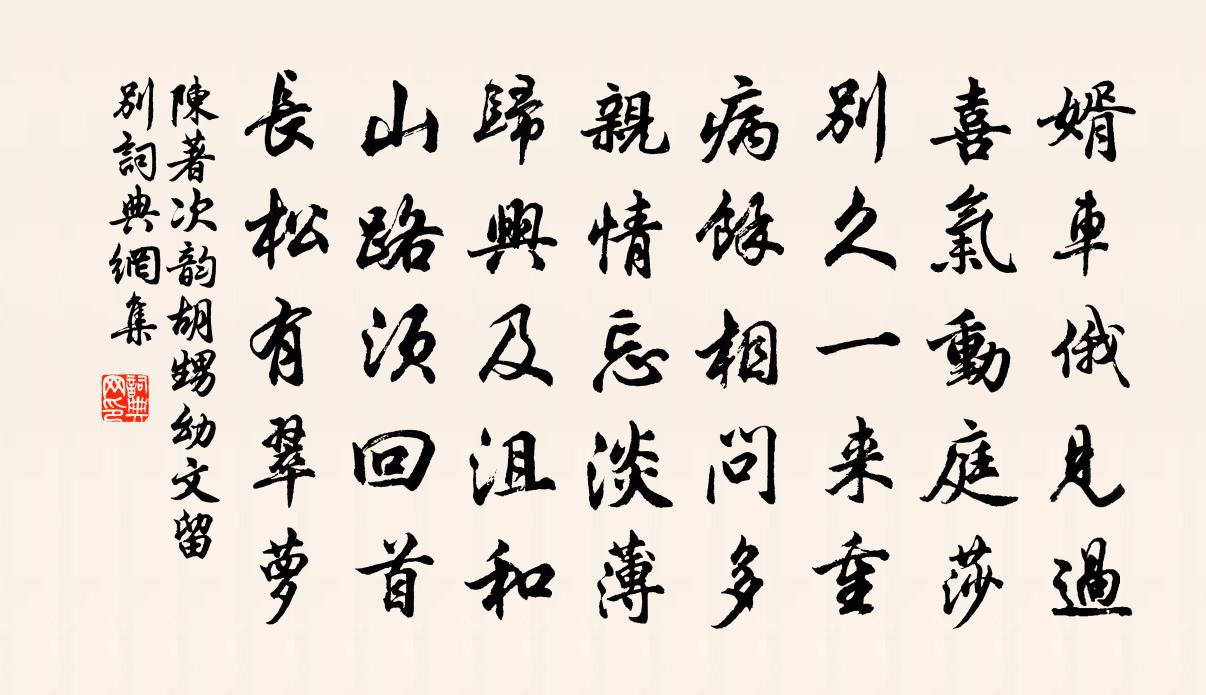 婿車俄見過
喜氣動庭莎
別久一来重
病餘相問多
親情忘淡薄
歸興及沮和
山路須回首
長松有翠蘿
陳著次韵胡甥幼文留
別詞典網集
詞典
网印